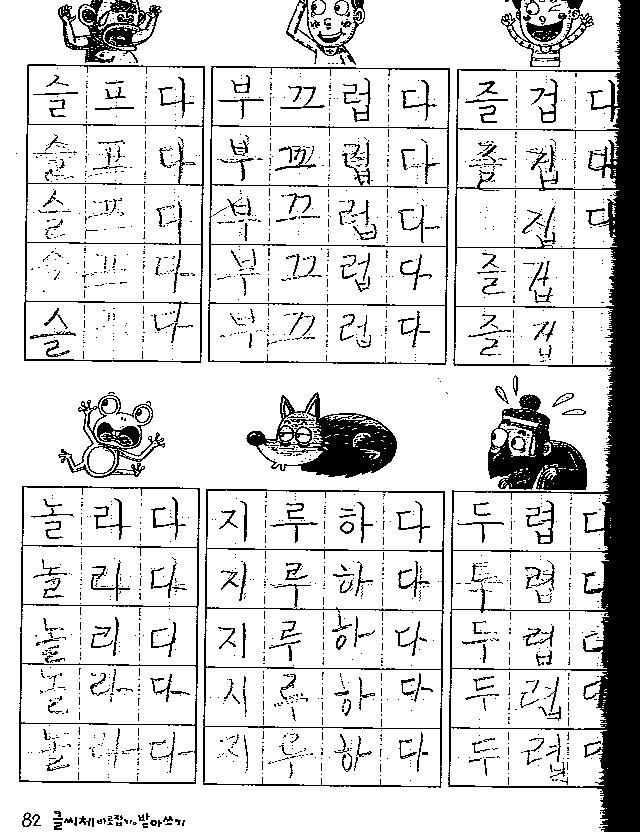 슬프다 부끄럽다 즐겁다
슬프다 부끄럽다 즐겁다
슬프다 부끄럽다 겁다
슬프다 부끄럽다 즐겁
슬프다 부끄럽다 즐겁
놀라다 지루하다 두렵다
놀라다 지루하다 두렵다
놀라다 지루하다 두렵다
놀라다 지루하다 두렵다
놀라다 지루하다 두렵다
82 글씨체 바로잡기와 받아쓰기